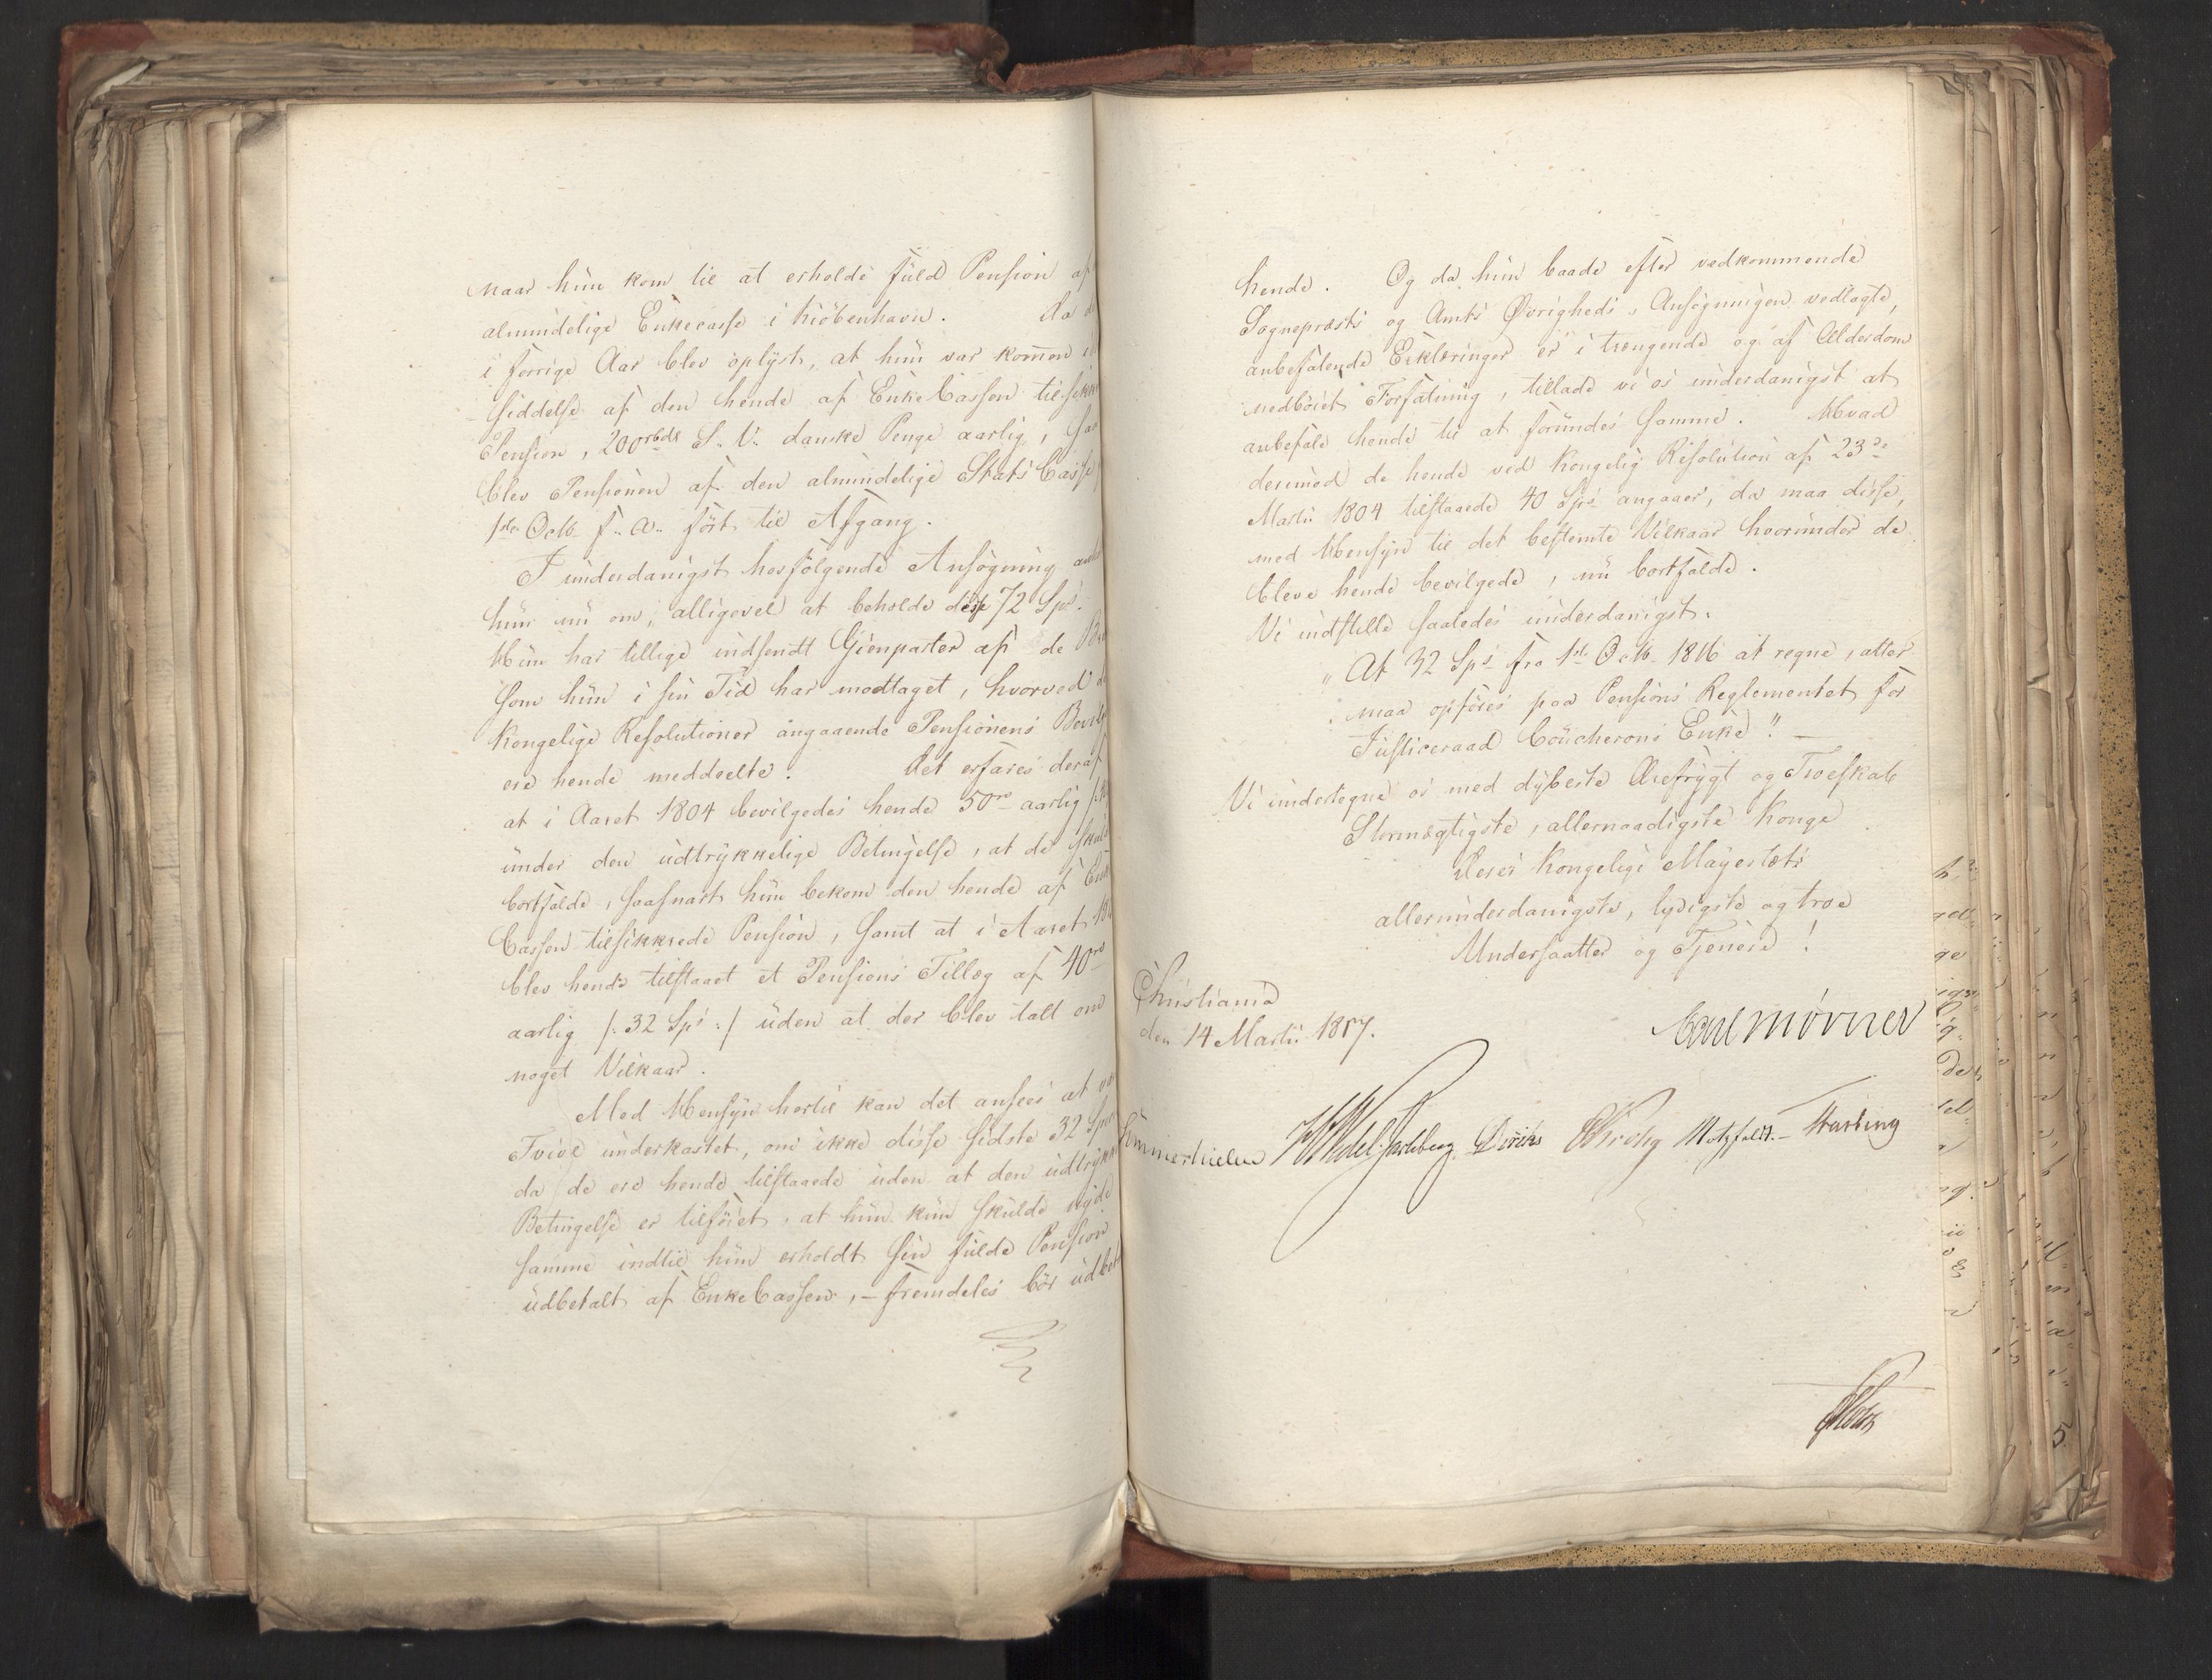 naar hun kom til at erholde fuld Pension af
almindelige Enkecasse i Kiöbenhavn. Da d
i forrige Aar blev oplyst, at hun var kommen i
siddelse af den hende af Enke Cassen tilsikk
Pension, 200 rbdr S. V. danske Penge aarlig, saa
blev Pensionen af den almindelige Stats Casse
1ste Octb. f. A. fört til Afgang.
I underdanigst hosfölgende Ansögning
hun nu om, alligevel at beholde disse 72 Sps.
Hun har tillige indsendt Gienparter af de
som hun i sin Tid har modtaget, hvorved d
Kongelige Resolutioner angaaende Pensionens Bevilg
ere hende meddeelte. Det erfares deraf
at i Aaret 1804 bevilgedes hende 50 rd aarlig
under den udtrykkelige Betingelse, at de skulde
bortfalde, saasnart hun bekom den hende af Enke
Cassen tilsikkrede Pension, samt at i Aaret 18
blev hende tilstaaet et Pensions Tillæg af 40 rd
aarlig /: 32 Sps :/ uden at der blev talt om
noget Vilkaar.
Med Hensyn hertil kan det ansees at
Tvivl underkastet, om ikke disse sidste 32 Sps
da de ere hende tilstaaede uden at den udtrykk
Betingelse er tilföiet, at hun kun skulde nyde
samme indtil hun erholdt sin fulde Pension
udbetalt af Enke Cassen, - fremdeles bör udbet
hende. Og da hun baade efter vedkommende
Sognepræsts og Amts Øvrigheds, Ansögningen vedlagte,
anbefalende Erklæringer er i trængende og af Alderdom
nedböiet Forfatning, tillade vi os underdanigst at
anbefale hende til at forundes samme. Hvad
derimod de hende ved Kongelig Resolution af 23de
Martii 1804 tilstaaede 40 Sps angaaer, da maa disse,
med Hensyn til det bestemte Vilkaar hvorunder de
bleve hende bevilgede, nu bortfalde.
Vi indstille saaledes underdanigst:
"At 32 Sps fra 1ste Octb. 1816 at regne, atter
maa opföres paa Pensions Reglementet for
Justiceraad Coucherons Enke".
Vi undertegne os med dybeste Ærefrygt og Troeskab
Stormægtigste, allernaadigste Konge
Deres Kongelige Mayestæts
allerunderdanigste, lydigste og troe
Undersaatter og Tjenere!
Christiania
den 14 Martii 1817.
Carl Mörner
Sommerhielm Wedel Jarlsberg Diriks Krohg Motzfeldt. Hasting